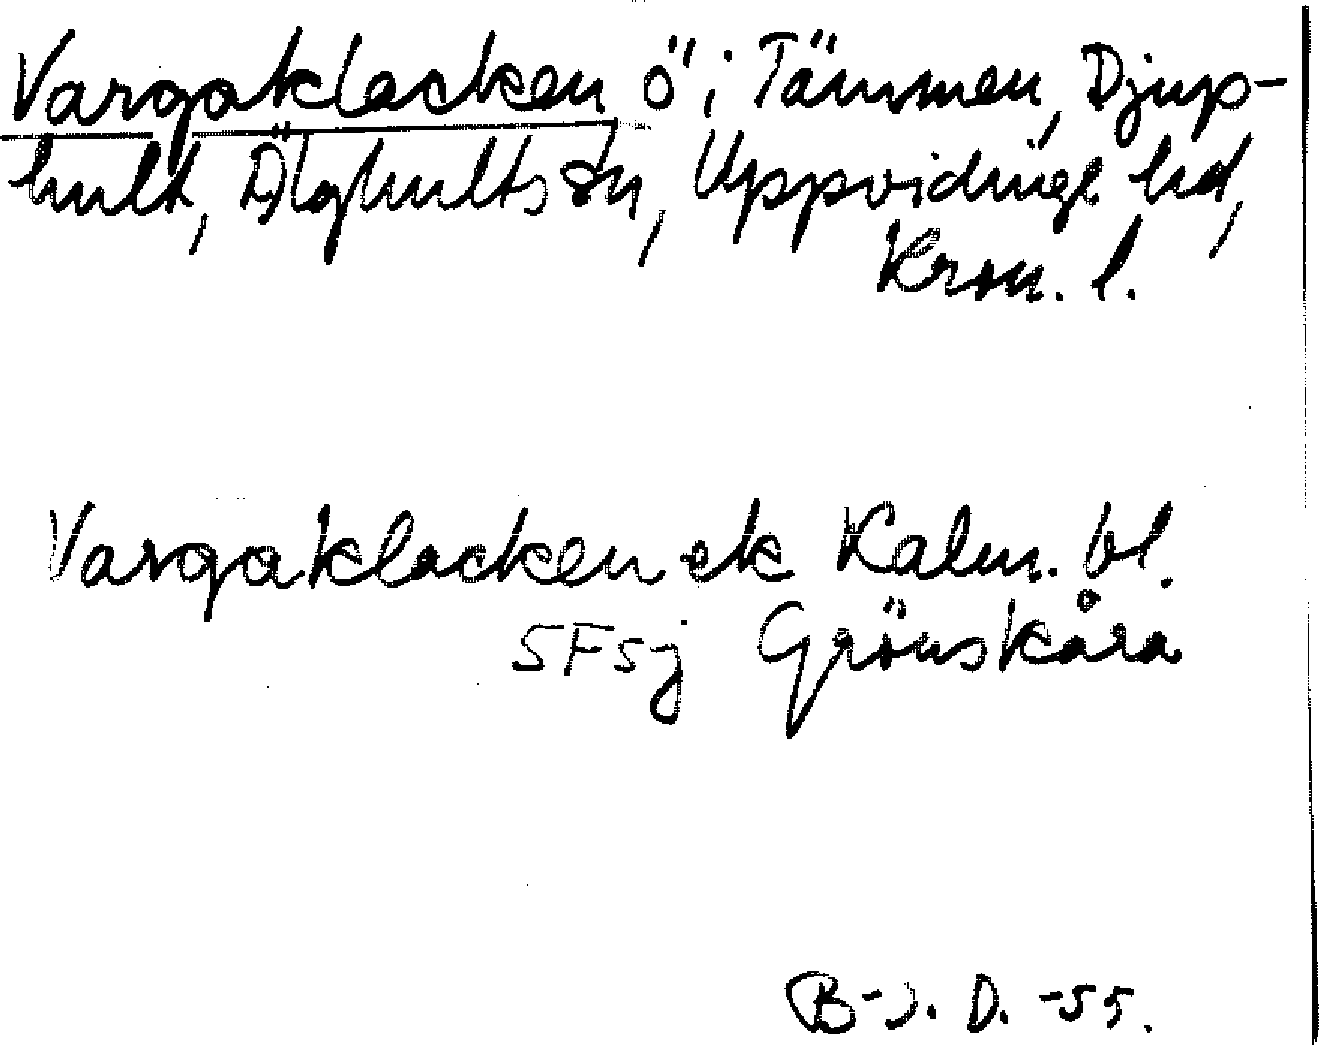 Vargaklacken ö i Tämmen, Djup-
hult, Älghults sn, Uppvidinge hd,
Kron. l.
Vargaklacken ek Kalm. bl.
SFsj Grönskåra
B-J. D. -55.